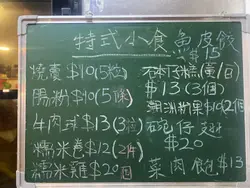 特式小食 魚皮餃
$15
燒賣$10(5粒)
砵仔糕(黃/白)
$13(3個)
腸粉$10(5條)
潮洲粉果$10 2個
牛肉球$13(3粒)
碗仔翅
$20
糯米卷$12(2件)
糯米雞$20
菜肉飽$13